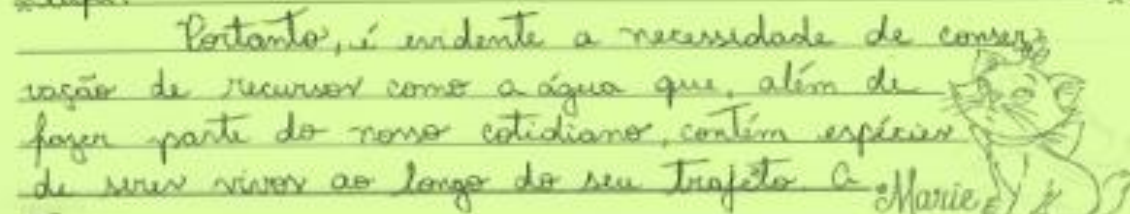 Portanto, é evidente a necessidade de conser-
vação de recursos como a água que, além de
fazer parte do nosso cotidiano, contém espécies
de seres vivos ao longo do seu trajeto. A
Marie